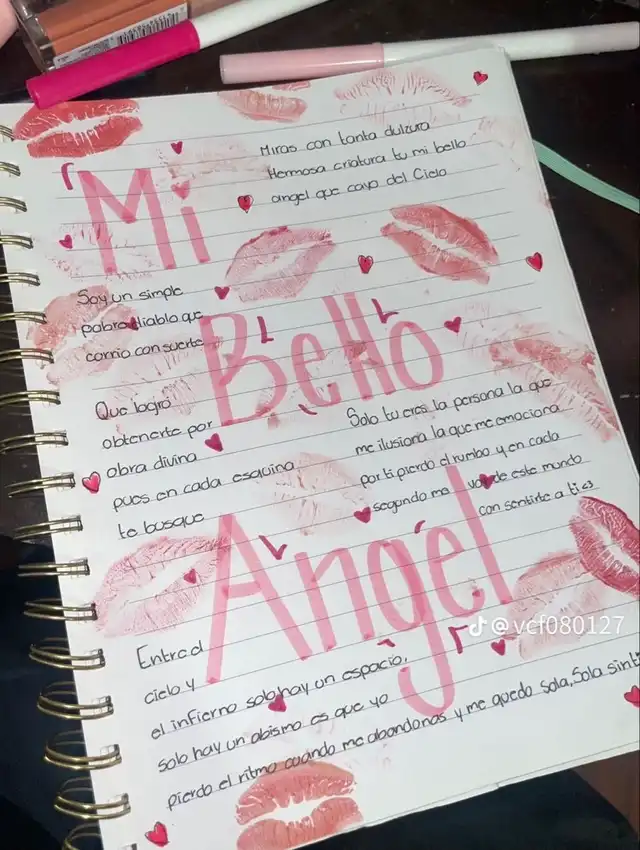 Miras con tanta dulzura
Hermosa criatura tu mi bello
angel que cayo del Cielo
Mi
Soy un simple
pobre diablo que
corrio con suerte
Bello
Que logro
obtenerte por
obra divina
pues en cada esquina
te busque
Solo tu eres la persona la que
me ilusiona la que me emociona
por ti pierdo el rumbo y en cada
segundo me voy de este mundo
con sentirte a ti es
Angel
Entre el
cielo y
el infierno solo hay un espacio,
solo hay un abismo es que yo
pierdo el ritmo cuando me abandonas y me quedo sola, Sola
@vcf080127